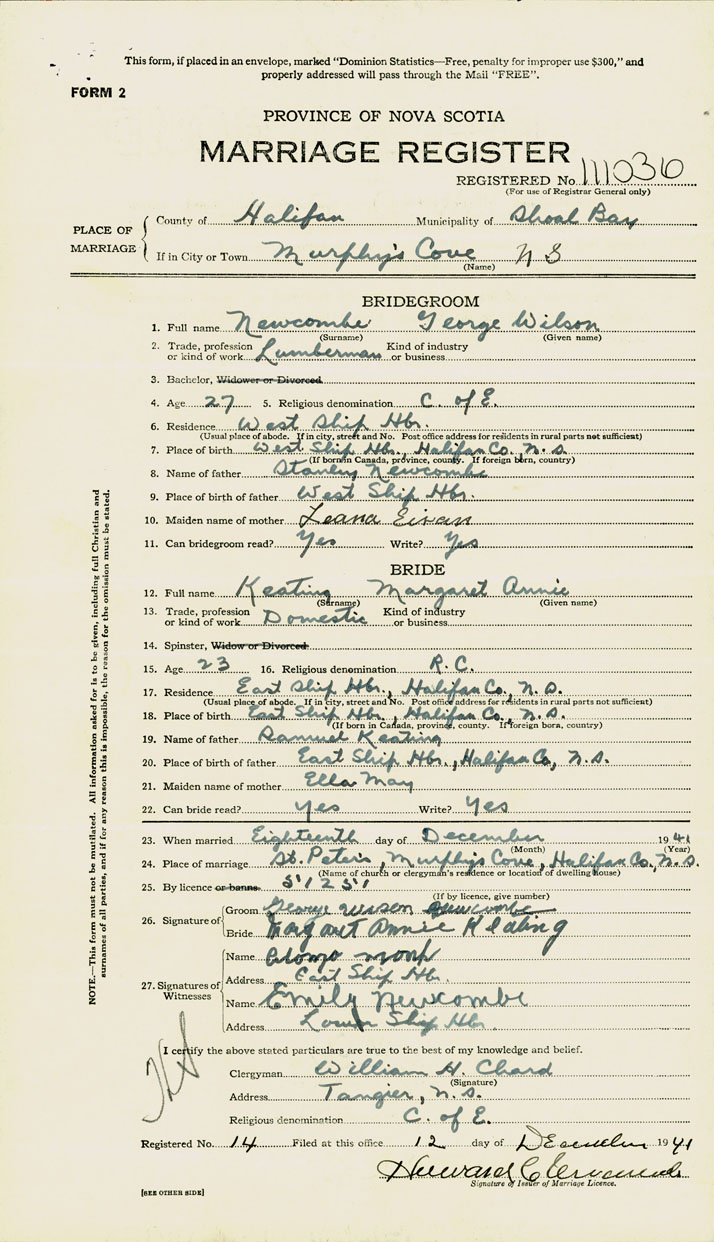 This form, if placed in an envelope, marked "Dominion Statistics—Free, penalty for improper use $300," and
properly addressed will pass through the Mail "FREE".
FORM 2
PROVINCE OF NOVA SCOTIA
MARRIAGE REGISTER
REGISTERED No. 111036
(For use of Registrar General only)
PLACE OF MARRIAGE
County of Halifax Municipality of Shoal Bay
If in City or Town Murphy's Cove N S
(Name)
BRIDEGROOM
1. Full name Newcombe George Wilson
(Surname) (Given name)
2. Trade, profession or kind of work Lumberman Kind of industry or business
3. Bachelor, Widower or Divorced
4. Age 27 5. Religious denomination C. of E.
6. Residence West Ship Hbr.
(Usual place of abode. If in city, street and No. Post office address for residents in rural parts not sufficient)
7. Place of birth West Ship Hbr., Halifax Co., N.S.
(If born in Canada, province, county. If foreign born, country)
8. Name of father Stanley Newcombe
9. Place of birth of father West Ship Hbr.
10. Maiden name of mother Leana
11. Can bridegroom read? Yes Write? Yes
BRIDE
12. Full name Keating Margaret Annie
(Surname) (Given name)
13. Trade, profession or kind of work Domestic Kind of industry or business
14. Spinster, Widow or Divorced
15. Age 23 16. Religious denomination R.C.
17. Residence East Ship Hbr., Halifax Co., N.S.
(Usual place of abode. If in city, street and No. Post office address for residents in rural parts not sufficient)
18. Place of birth East Ship Hbr., Halifax Co., N.S.
(If born in Canada, province, county. If foreign born, country)
19. Name of father Samuel Keating
20. Place of birth of father East Ship Hbr., Halifax Co., N.S.
21. Maiden name of mother Ella May
22. Can bride read? Yes Write? Yes
23. When married Eighteenth day of December 1941
(Month) (Year)
24. Place of marriage St. Peter's, Murphy's Cove, Halifax Co., N.S.
(Name of church or clergyman's residence or location of dwelling house)
25. By licence or banns 51251
(If by licence, give number)
26. Signature of
Groom George Wilson Newcombe
Bride Margaret Annie Keating
27. Signatures of Witnesses
Name Monk
Address East Ship Hbr.
Name Emily Newcombe
Address Lower Ship Hbr
I certify the above stated particulars are true to the best of my knowledge and belief.
Clergyman William H. Chard
(Signature)
Address Tangier, N.S.
Religious denomination C. of E.
Registered No. 14 Filed at this office 12 day of December 1941
Signature of Issuer of Marriage Licence.
[SEE OTHER SIDE]
NOTE.—This form must not be mutilated. All information asked for is to be given, including full Christian and
surnames of all parties, and if for any reason this is impossible, the reason for the omission must be stated.